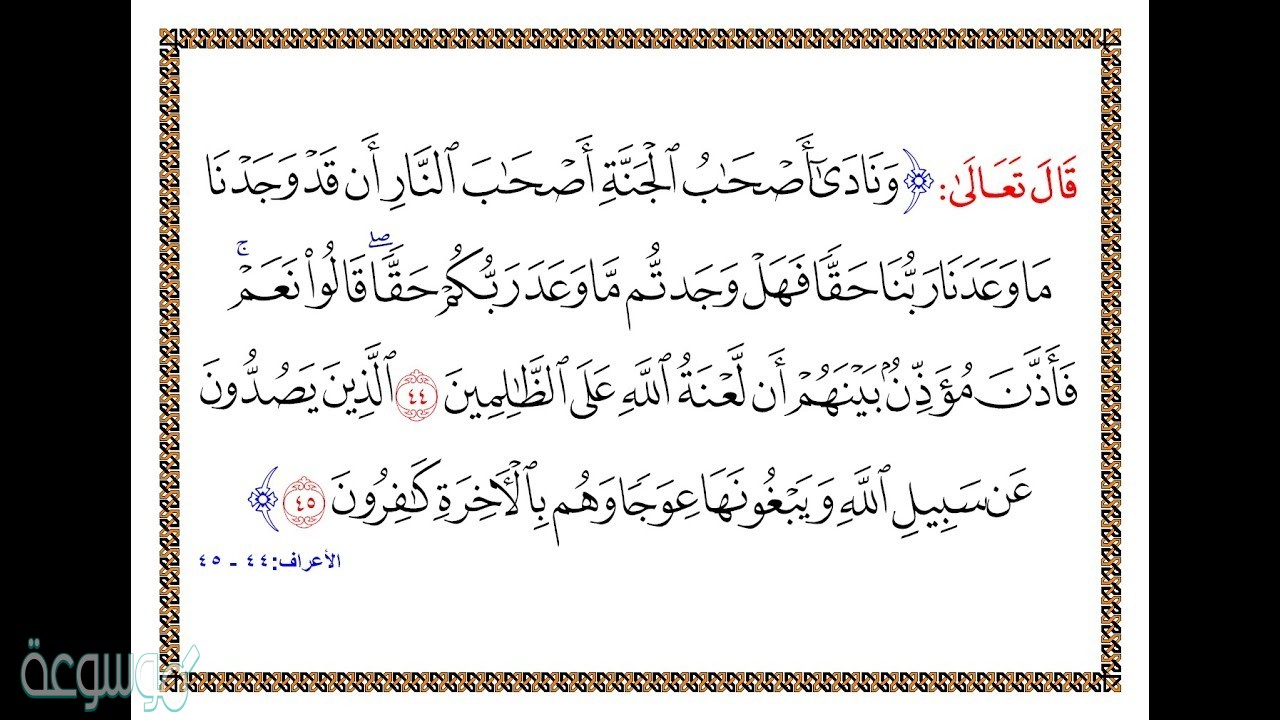 قَالَ تَعَالَىٰ: ﴿وَنَادَىٰٓ أَصۡحَٰبُ ٱلۡجَنَّةِ أَصۡحَٰبَ ٱلنَّارِ أَن قَدۡ وَجَدۡنَا
مَا وَعَدَنَا رَبُّنَا حَقّٗا فَهَلۡ وَجَدتُّم مَّا وَعَدَ رَبُّكُمۡ حَقّٗاۖ قَالُواْ نَعَمۡۚ
فَأَذَّنَ مُؤَذِّنُۢ بَيۡنَهُمۡ أَن لَّعۡنَةُ ٱللَّهِ عَلَى ٱلظَّٰلِمِينَ ٤٤ ٱلَّذِينَ يَصُدُّونَ
عَن سَبِيلِ ٱللَّهِ وَيَبۡغُونَهَا عِوَجٗا وَهُم بِٱلۡأٓخِرَةِ كَٰفِرُونَ ٤٥﴾
الأعراف: ٤٤ - ٤٥
موسوعة